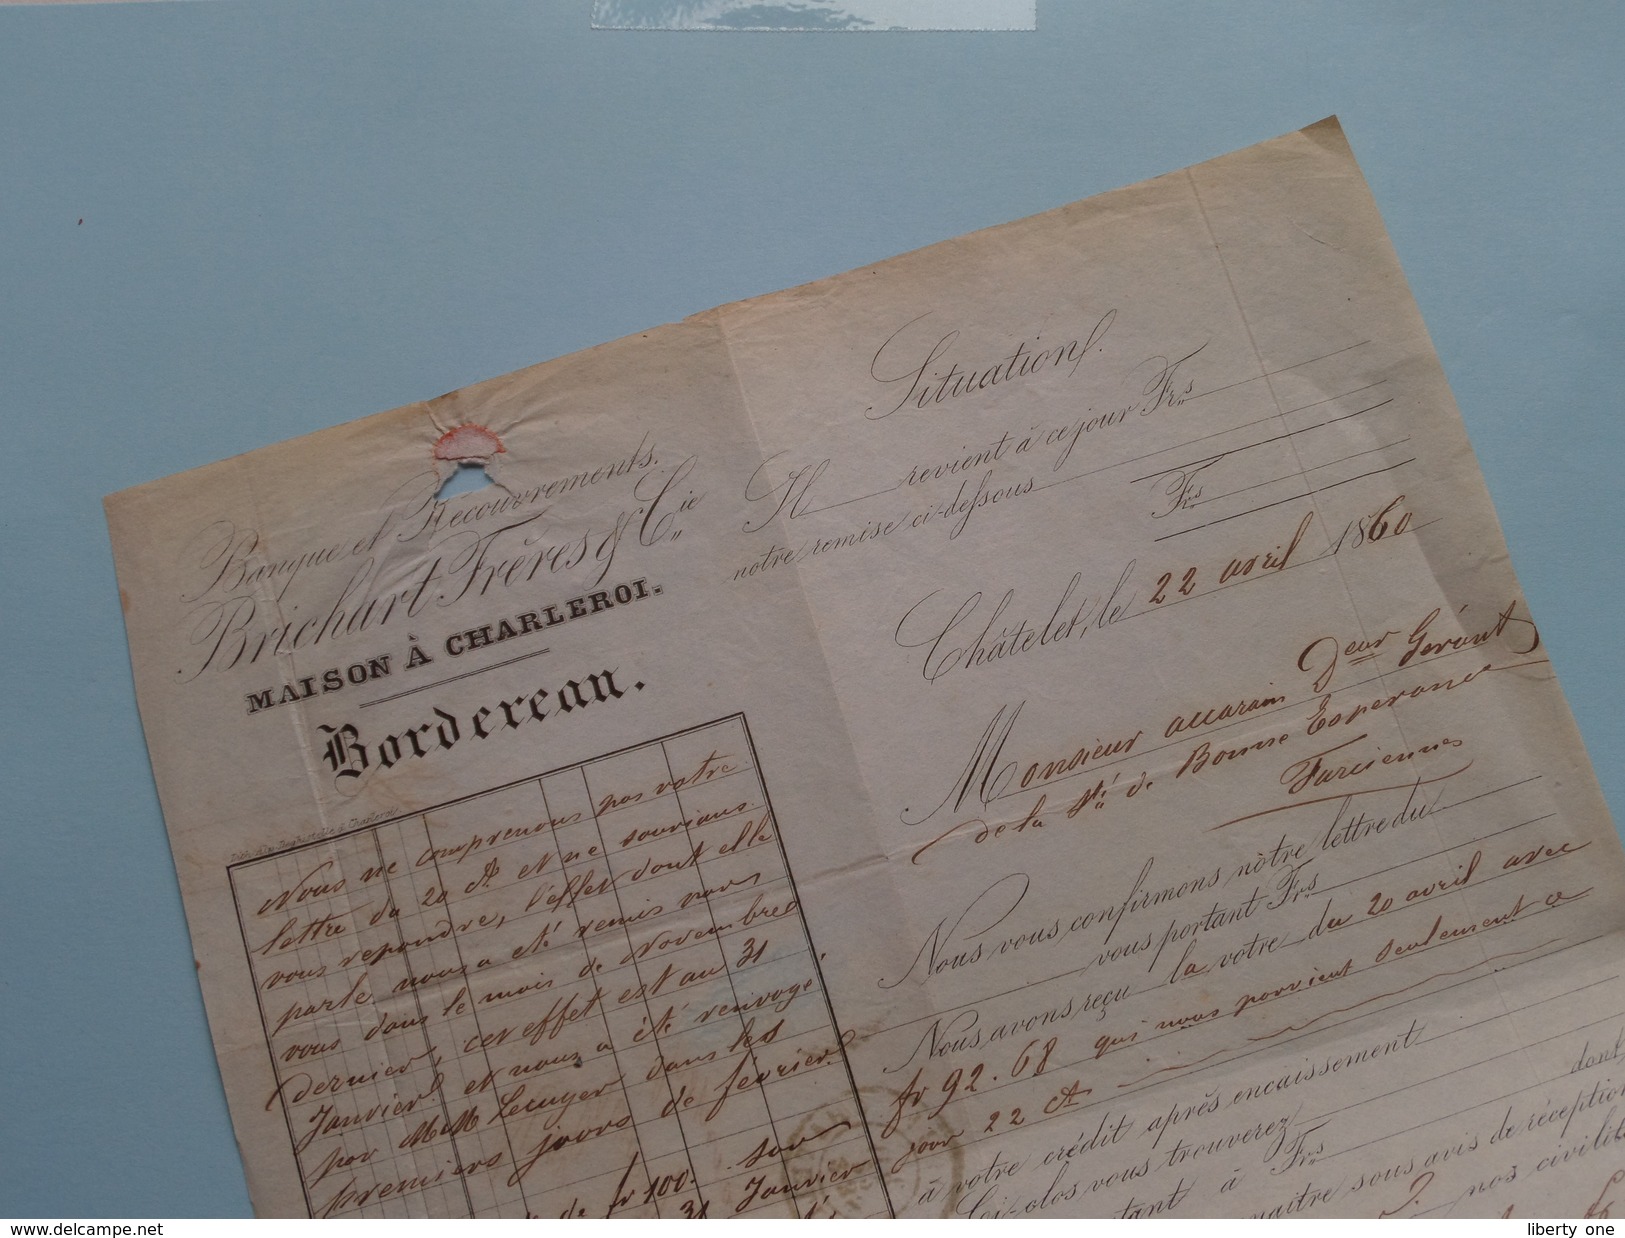 Banque et Recouvrements.
Brichart Frères & Cie
MAISON À CHARLEROI.
Bordereau.
Nous ne comprenons pas votre
lettre du 20 ct et ne saurions
vous repondre, l'effet dont elle
parle nous a été remis par
vous dans le mois de Novembre
dernier, cet effet est au 31
Janvier et nous a été renvoyé
par MM Lecuyer dans les
premiers jours de février.
de fr 100. sur
31 Janvier
Situation.
Il revient à ce jour Frs
notre remise ci-dessous
Frs
Châtelet, le 22 avril 1860
Monsieur accarain Deur Gérant
de la Sté de Bonne Esperance
Farciennes
Nous vous confirmons nôtre lettre du
vous portant Frs
Nous avons reçu la votre du 20 avril avec
fr 92.68 qui nous parvient seulement ce
jour 22 ct
à votre crédit après encaissement
Ci-clos vous trouverez dont
à Frs
sous avis de réception
nos civilit
delcampe.net
liberty one